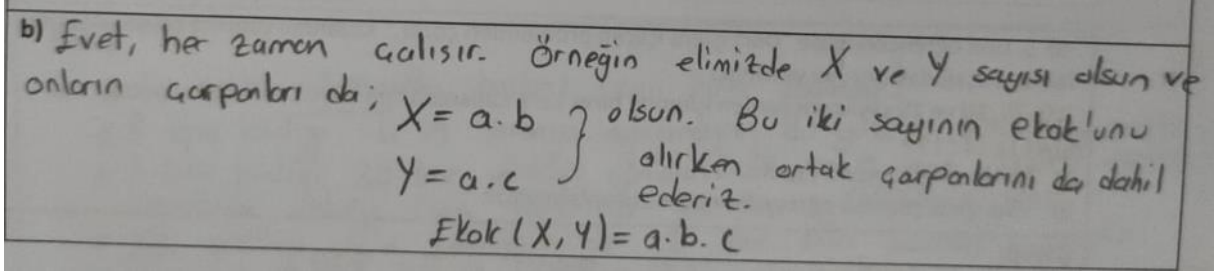 b) Evet, her zaman çalışır. Örneğin elimizde X ve Y sayısı olsun ve
onların çarpanları da;
X = a.b
Y = a.c
} olsun. Bu iki sayının ekok'unu
alırken ortak çarpanlarını da dahil
ederiz.
Ekok (X, Y) = a.b.c